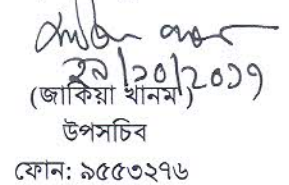 ২৯/১০/২০১৭
(জাকিয়া খানম)
উপসচিব
ফোন: ৯৫৫৩২৭৬